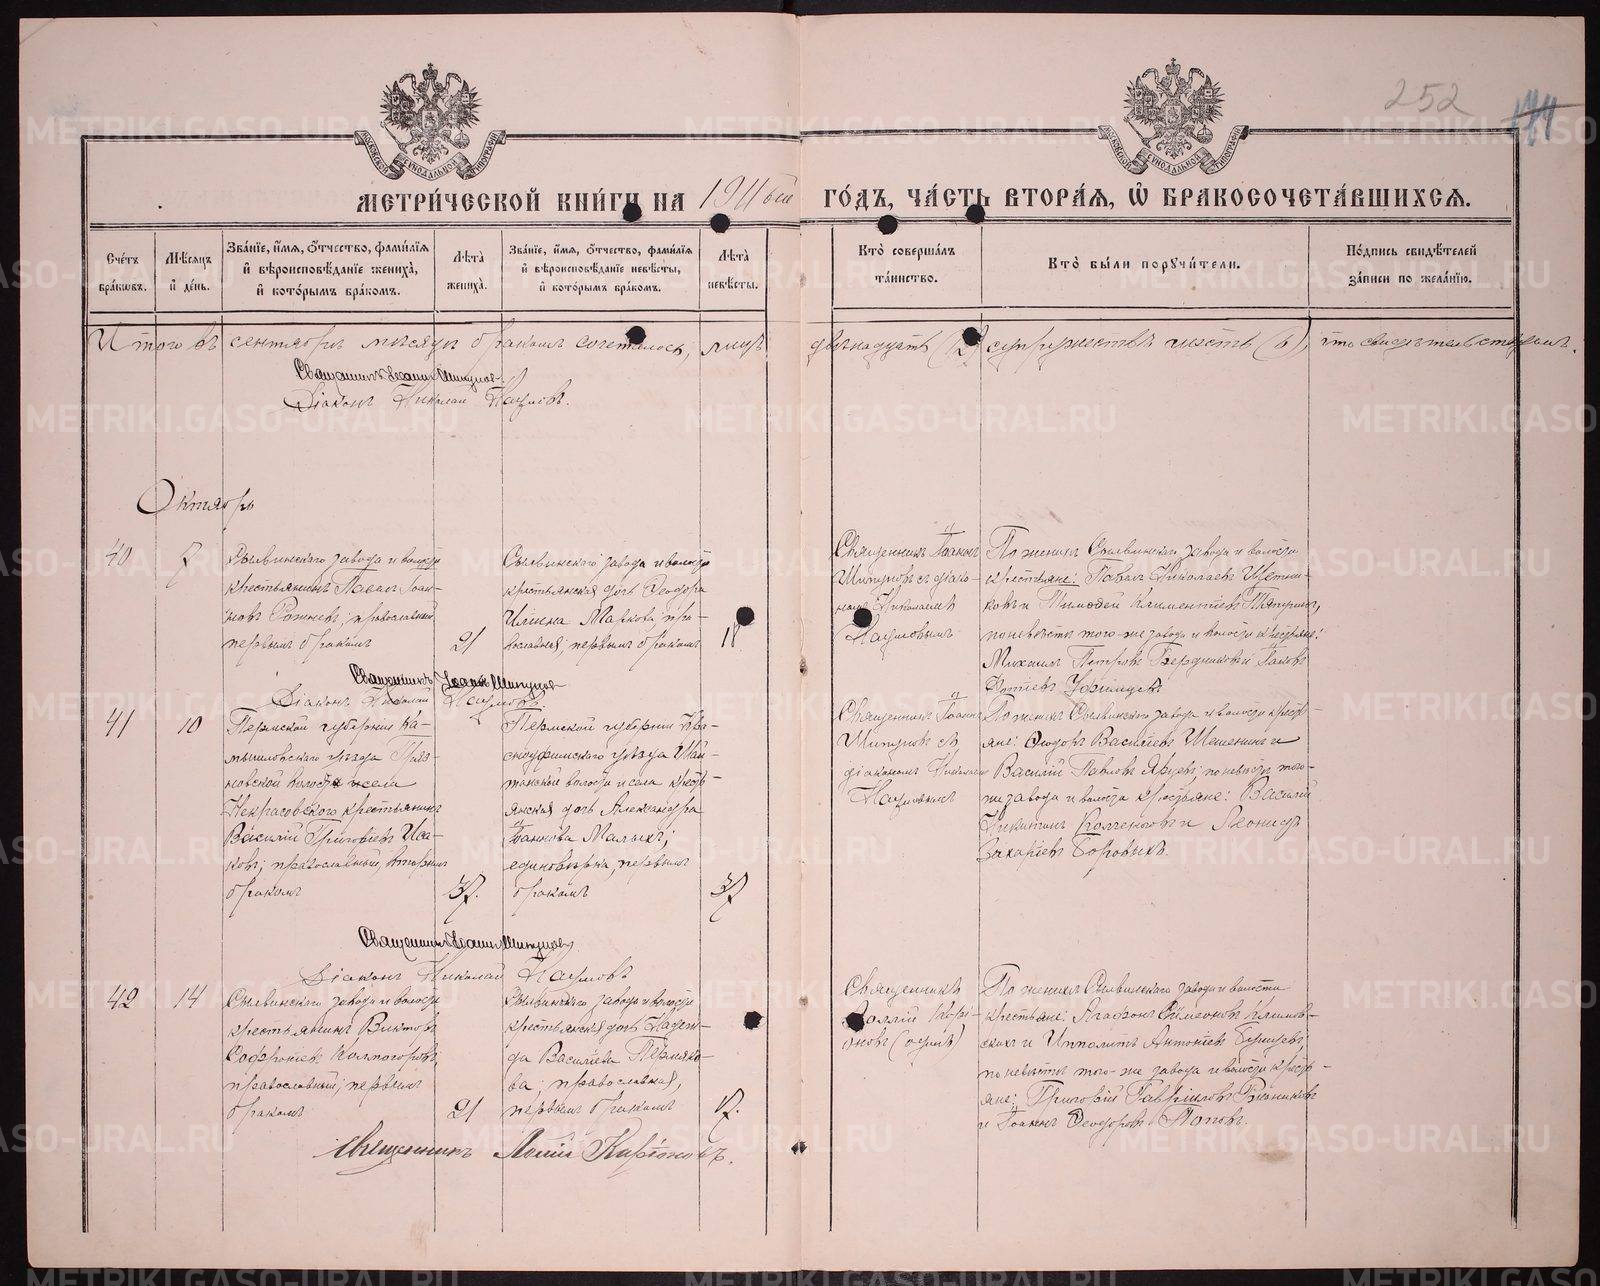 252
МЕТРИЧЕСКОЙ КНИГИ НА 1911ый ГОДЪ, ЧАСТЬ ВТОРАЯ, Ѡ БРАКОСОЧЕТАВШИХСЯ.
Счетъ браковъ.
Мѣсяцъ и день.
Званіе, имя, отчество, фамилія и вѣроисповѣданіе жениха, и которымъ бракомъ.
Лѣта жениха.
Званіе, имя, отчество, фамилія и вѣроисповѣданіе невѣсты, и которымъ бракомъ.
Лѣта невѣсты.
Кто совершалъ таинство.
Кто были поручители.
Подпись свидѣтелей записи по желанію.
Итого въ сентябрѣ мѣсяцѣ бракомъ сочеталось, лицъ двѣнадцать (12) супружествъ шесть (6), что свидѣтельствуемъ.
Священникъ Іоаннъ Шипуновъ
Діаконъ Николай Наумовъ.
Октябрь
40
7
Сылвинскаго завода и волости
крестьянинъ Павелъ Іоан-
новъ православный
первымъ бракомъ
21
Сылвинскаго завода и волости
крестьянская дочь Ѳеодора
Маркова, пра-
вославная, первымъ бракомъ
18
Священникъ Іоаннъ
Шипуновъ съ діако-
номъ Николаемъ
Наумовымъ
По женихѣ Сылвинскаго завода и волости
крестьяне: Павелъ Николаевъ Щетни-
ковъ и Тимоѳей Климентіевъ
по невѣстѣ того-же завода и волости крестьяне:
Михаилъ Петровъ Бердниковъ и Іаковъ
Уфимцевъ
Священникъ Іоаннъ Шипуновъ
Діаконъ Николай Наумовъ.
41
10
Пермской губерніи Ка-
мышловскаго уѣзда
новской волости села
Некрасовскаго крестьянинъ
Василій Григоріевъ Иса-
ковъ, православный, вторымъ
бракомъ
37.
Пермской губерніи Кра-
сноуфимскаго уѣзда Шай-
танской волости и села кресть-
янская дочь Александра
Іоаннова Малыхъ,
единовѣрка, первымъ
бракомъ
37
Священникъ Іоаннъ
Шипуновъ съ
діакономъ Николаемъ
Наумовымъ
По женихѣ Сылвинскаго завода и волости кресть-
яне: Ѳеодоръ Василіевъ Шешенинъ и
Василій Павловъ Ярцевъ; по невѣстѣ того-
же завода и волости крестьяне: Василій
Никитинъ и Леонидъ
Захаріевъ Боровыхъ.
Священникъ Іоаннъ Шипуновъ
Діаконъ Николай Наумовъ
42
14
Сылвинскаго завода и волости
крестьянинъ Викторъ
Софроніевъ Колмогоровъ,
православный, первымъ
бракомъ
21
Сылвинскаго завода и волости
крестьянская дочь Надеж-
да Василіева Пермяко-
ва, православная,
первымъ бракомъ
17.
Священникъ
Лоллій Киріо-
новъ (одинъ)
По женихѣ Сылвинскаго завода и волости
крестьяне: Агафонъ Симеоновъ Климов-
скихъ и Ипполитъ Антоніевъ
по невѣстѣ того-же завода и волости кресть-
яне: Григорій Гавріиловъ
и Іоаннъ Ѳеодоровъ Поповъ.
Священникъ Лоллій Киріоновъ.